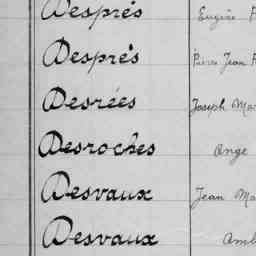 Després Eugène
Després Pierre Jean
Desrées Joseph
Desroches Ange
Desvaux Jean
Desvaux